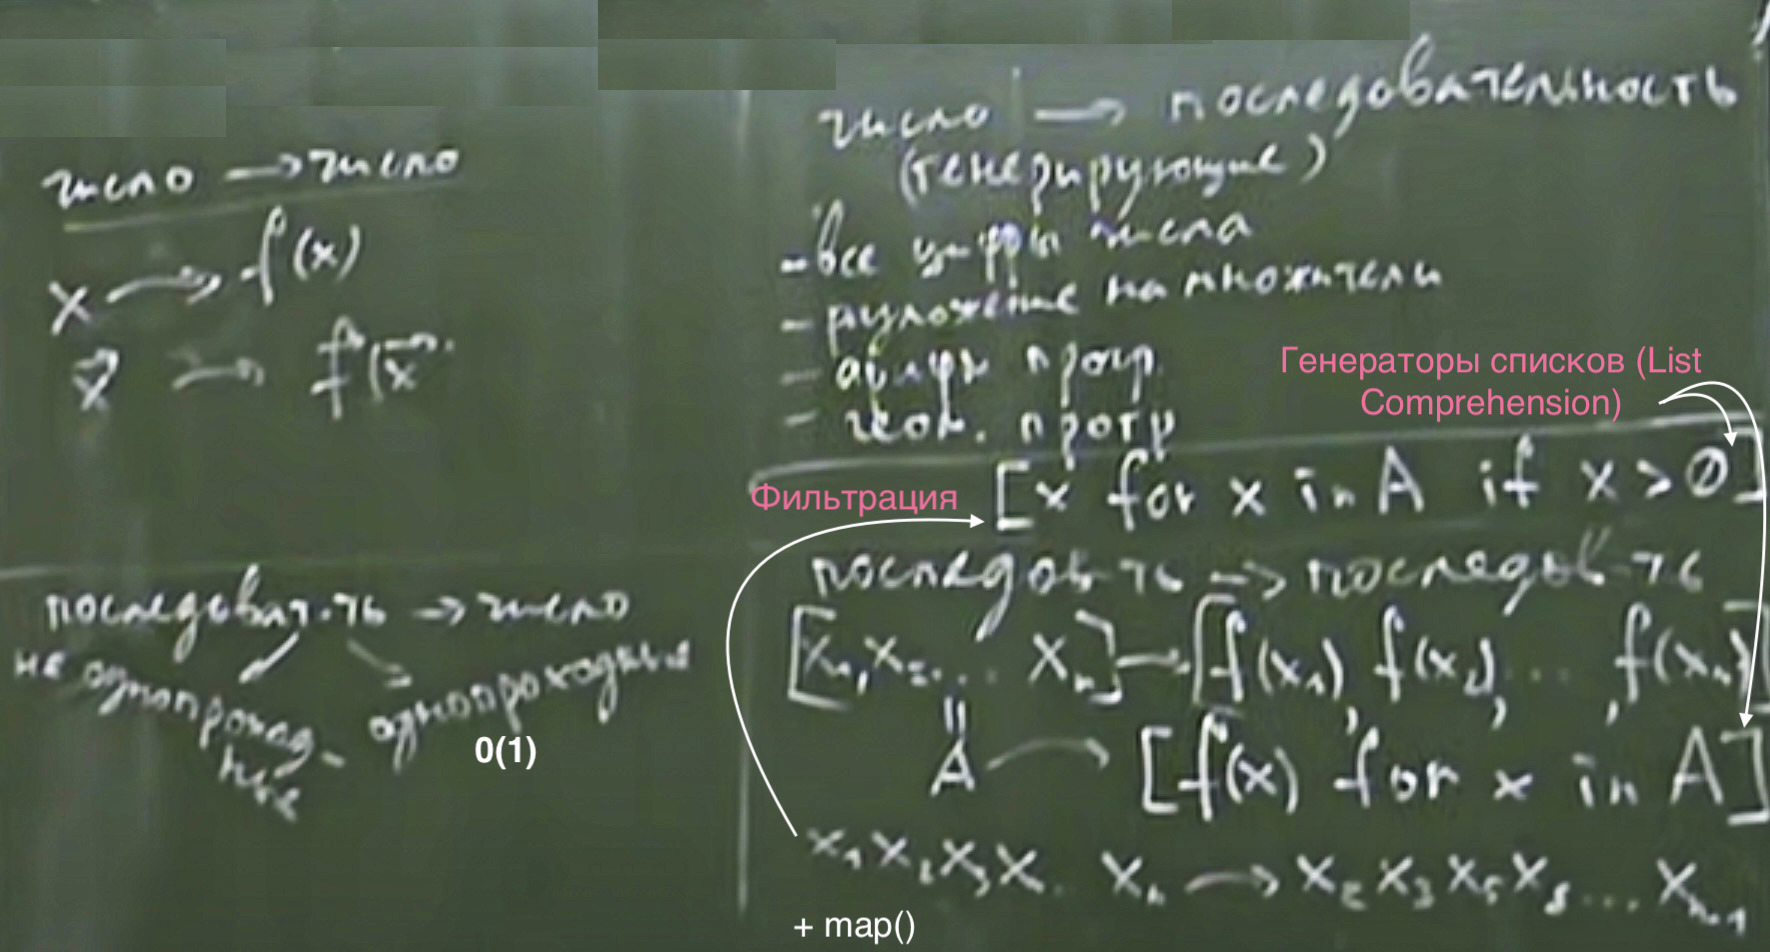 число → число
x → f(x)
x⃗ → f(x⃗
последоват-ть → число
не однопроход-
ные
однопроходные
0(1)
число → последовательность
(генерирующие)
- все цифры числа
- разложение на множители
- арифм прогр.
- геом. прогр
Генераторы списков (List
Comprehension)
Фильтрация
[x for x in A if x > 0]
последов-ть -> последов-ть
[x₁, x₂... xₙ] → [f(x₁), f(x₂), ... , f(xₙ)]
=
A → [f(x) for x in A]
x₁ x₂ x₃ x. xₙ → x₂ x₃ x₅ x₈ ... xₙ₋₁
+ map()